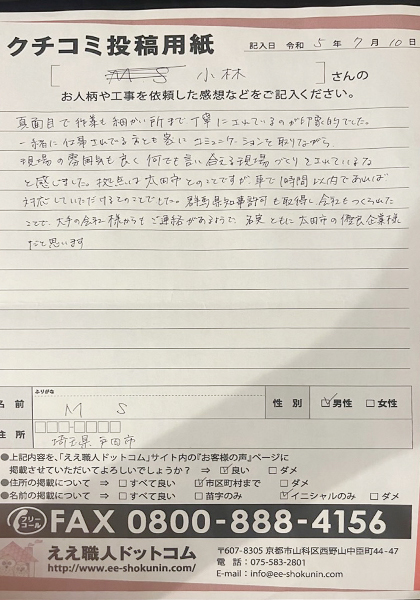 クチコミ投稿用紙
記入日 令和 5 年 7 月 10 日
[ M S 小林 ] さんの
お人柄や工事を依頼した感想などをご記入ください。
真面目で作業も細かい所まで丁寧にされているのが印象的でした。
一緒に仕事されてる方とも密にコミュニケーションを取りながら
現場の雰囲気も良く何でも言い合える現場づくりをされているな
と感じました。拠点は太田市とのことですが、車で1時間以内であれば
対応していただけるとのことでした。群馬県知事許可も取得し会社もつくられた
ことで、大手の会社様からもご連絡があるようで、名実ともに太田市の優良企業様
だと思います
ふりがな
名前 M S 性別 ☑男性 □女性
住所 □□□-□□□□
埼玉県戸田市
●上記内容を、「ええ職人ドットコム」サイト内の『お客様の声』ページに
掲載させていただいてよろしいでしょうか? ⇒ ☑良い □ダメ
●住所の掲載について ⇒ □すべて良い ☑市区町村まで □ダメ
●名前の掲載について ⇒ □すべて良い □苗字のみ ☑イニシャルのみ □ダメ
フリーコール FAX 0800-888-4156
ええ職人ドットコム
http://www.ee-shokunin.com/
〒607-8305 京都市山科区西野山中臣町44-47
電話:075-583-2801
E-mail:info@ee-shokunin.com